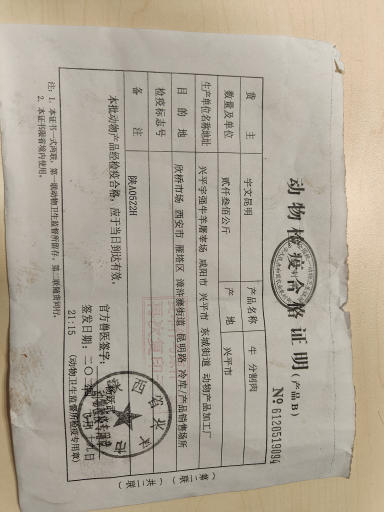 动物检疫合格证明 (产品B)
№ 6120519094
货主 宇文昆明 产品名称 牛 分割肉
数量及单位 贰仟叁佰公斤 产地 兴平市
生产单位名称地址 兴平宇强牛羊屠宰场 咸阳市 兴平市 东城街道 动物产品加工厂
目的地 欣桥市场 西安市 雁塔区 漳浒寨街道 昆明路 冷库/产品销售场所
检疫标志号
备注 陕A0522H
本批动物产品经检疫合格，应于当日到达有效。
官方兽医签字：
签发日期：二〇
21:15
(动物卫生监督所检疫专用章)
第二联
共二联
注：1、本证书一式两联，第一联动物卫生监督所留存，第二联随货同行。
2、本证书限省境内使用。